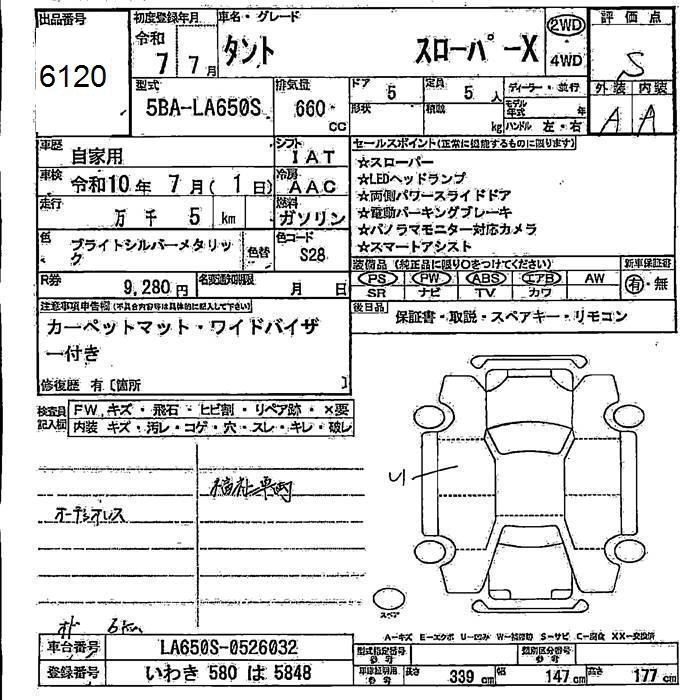 出品番号
6120
初度登録年月
令和
7 7月
車名・グレード
タント スローパーX
2WD
4WD
評価点
S
外装 内装
A A
型式
5BA-LA650S
排気量
660
CC
ドア 5
定員 5 人
形状
積載
kg
ディーラー・並行
モデル年式 年
ハンドル 左・右
車歴 自家用
シフト IAT
車検 令和10年 7月(1日)
冷房 AAC
走行 万 千 5 km
燃料 ガソリン
色 ブライトシルバーメタリック
色替
色コード
S28
R券
9,280円
名変期限
月 日
セールスポイント(正常に機能するものに限ります)
☆スローパー
☆LEDヘッドランプ
☆両側パワースライドドア
☆電動パーキングブレーキ
☆パノラマモニター対応カメラ
☆スマートアシスト
装備品(純正品に限り○をつけてください)
PS PW ABS エアB AW
SR ナビ TV カワ
新車保証書
有・無
後日品 保証書・取説・スペアキー・リモコン
注意事項申告欄(不具合内容等は具体的に記入して下さい)
カーペットマット・ワイドバイザ
ー付き
修復歴 有[箇所 ]
検査員記入欄
FW,キズ・飛石・ヒビ割・リペア跡・×要
内装 キズ・汚レ・コゲ・穴・スレ・キレ・破レ
福祉車両
オーディオレス
6km
スペア
A-キズ E-エクボ U-凹み W-補修跡 S-サビ C-腐食 XX-交換済
車台番号 LA650S-0526032
登録番号 いわき 580 は 5848
型式指定番号
参考
類別区分番号
参考
車庫証明用
参考
長さ 339 cm
幅 147 cm
高さ 177 cm